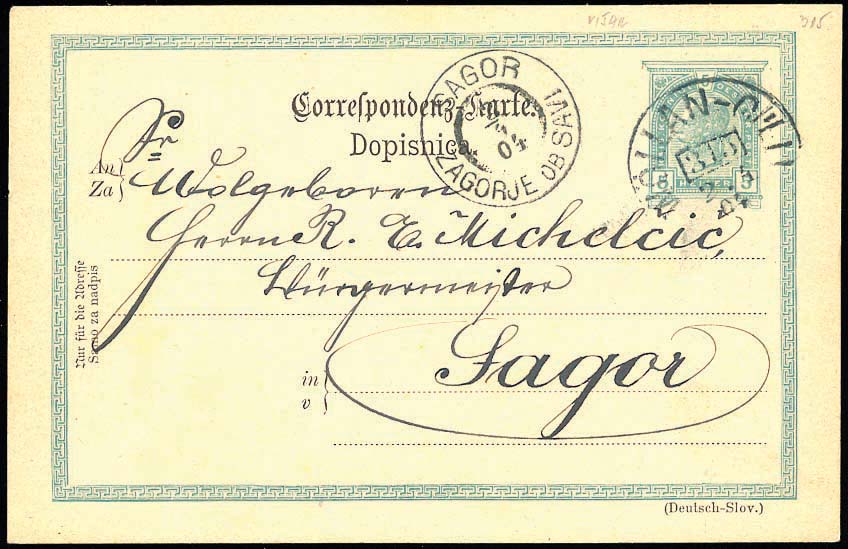 315
Correspondenz-Karte.
Dopisnica.
SAGOR
ZAGORJE OB SAVI
04
5 HELLER 5
Sr
An
Za
Wolgeboren
Herrn R. E. Michelcic,
Bürgermeister
in
v
Sagor
Nur für die Adresse
Samo za nadpis
(Deutsch-Slov.)